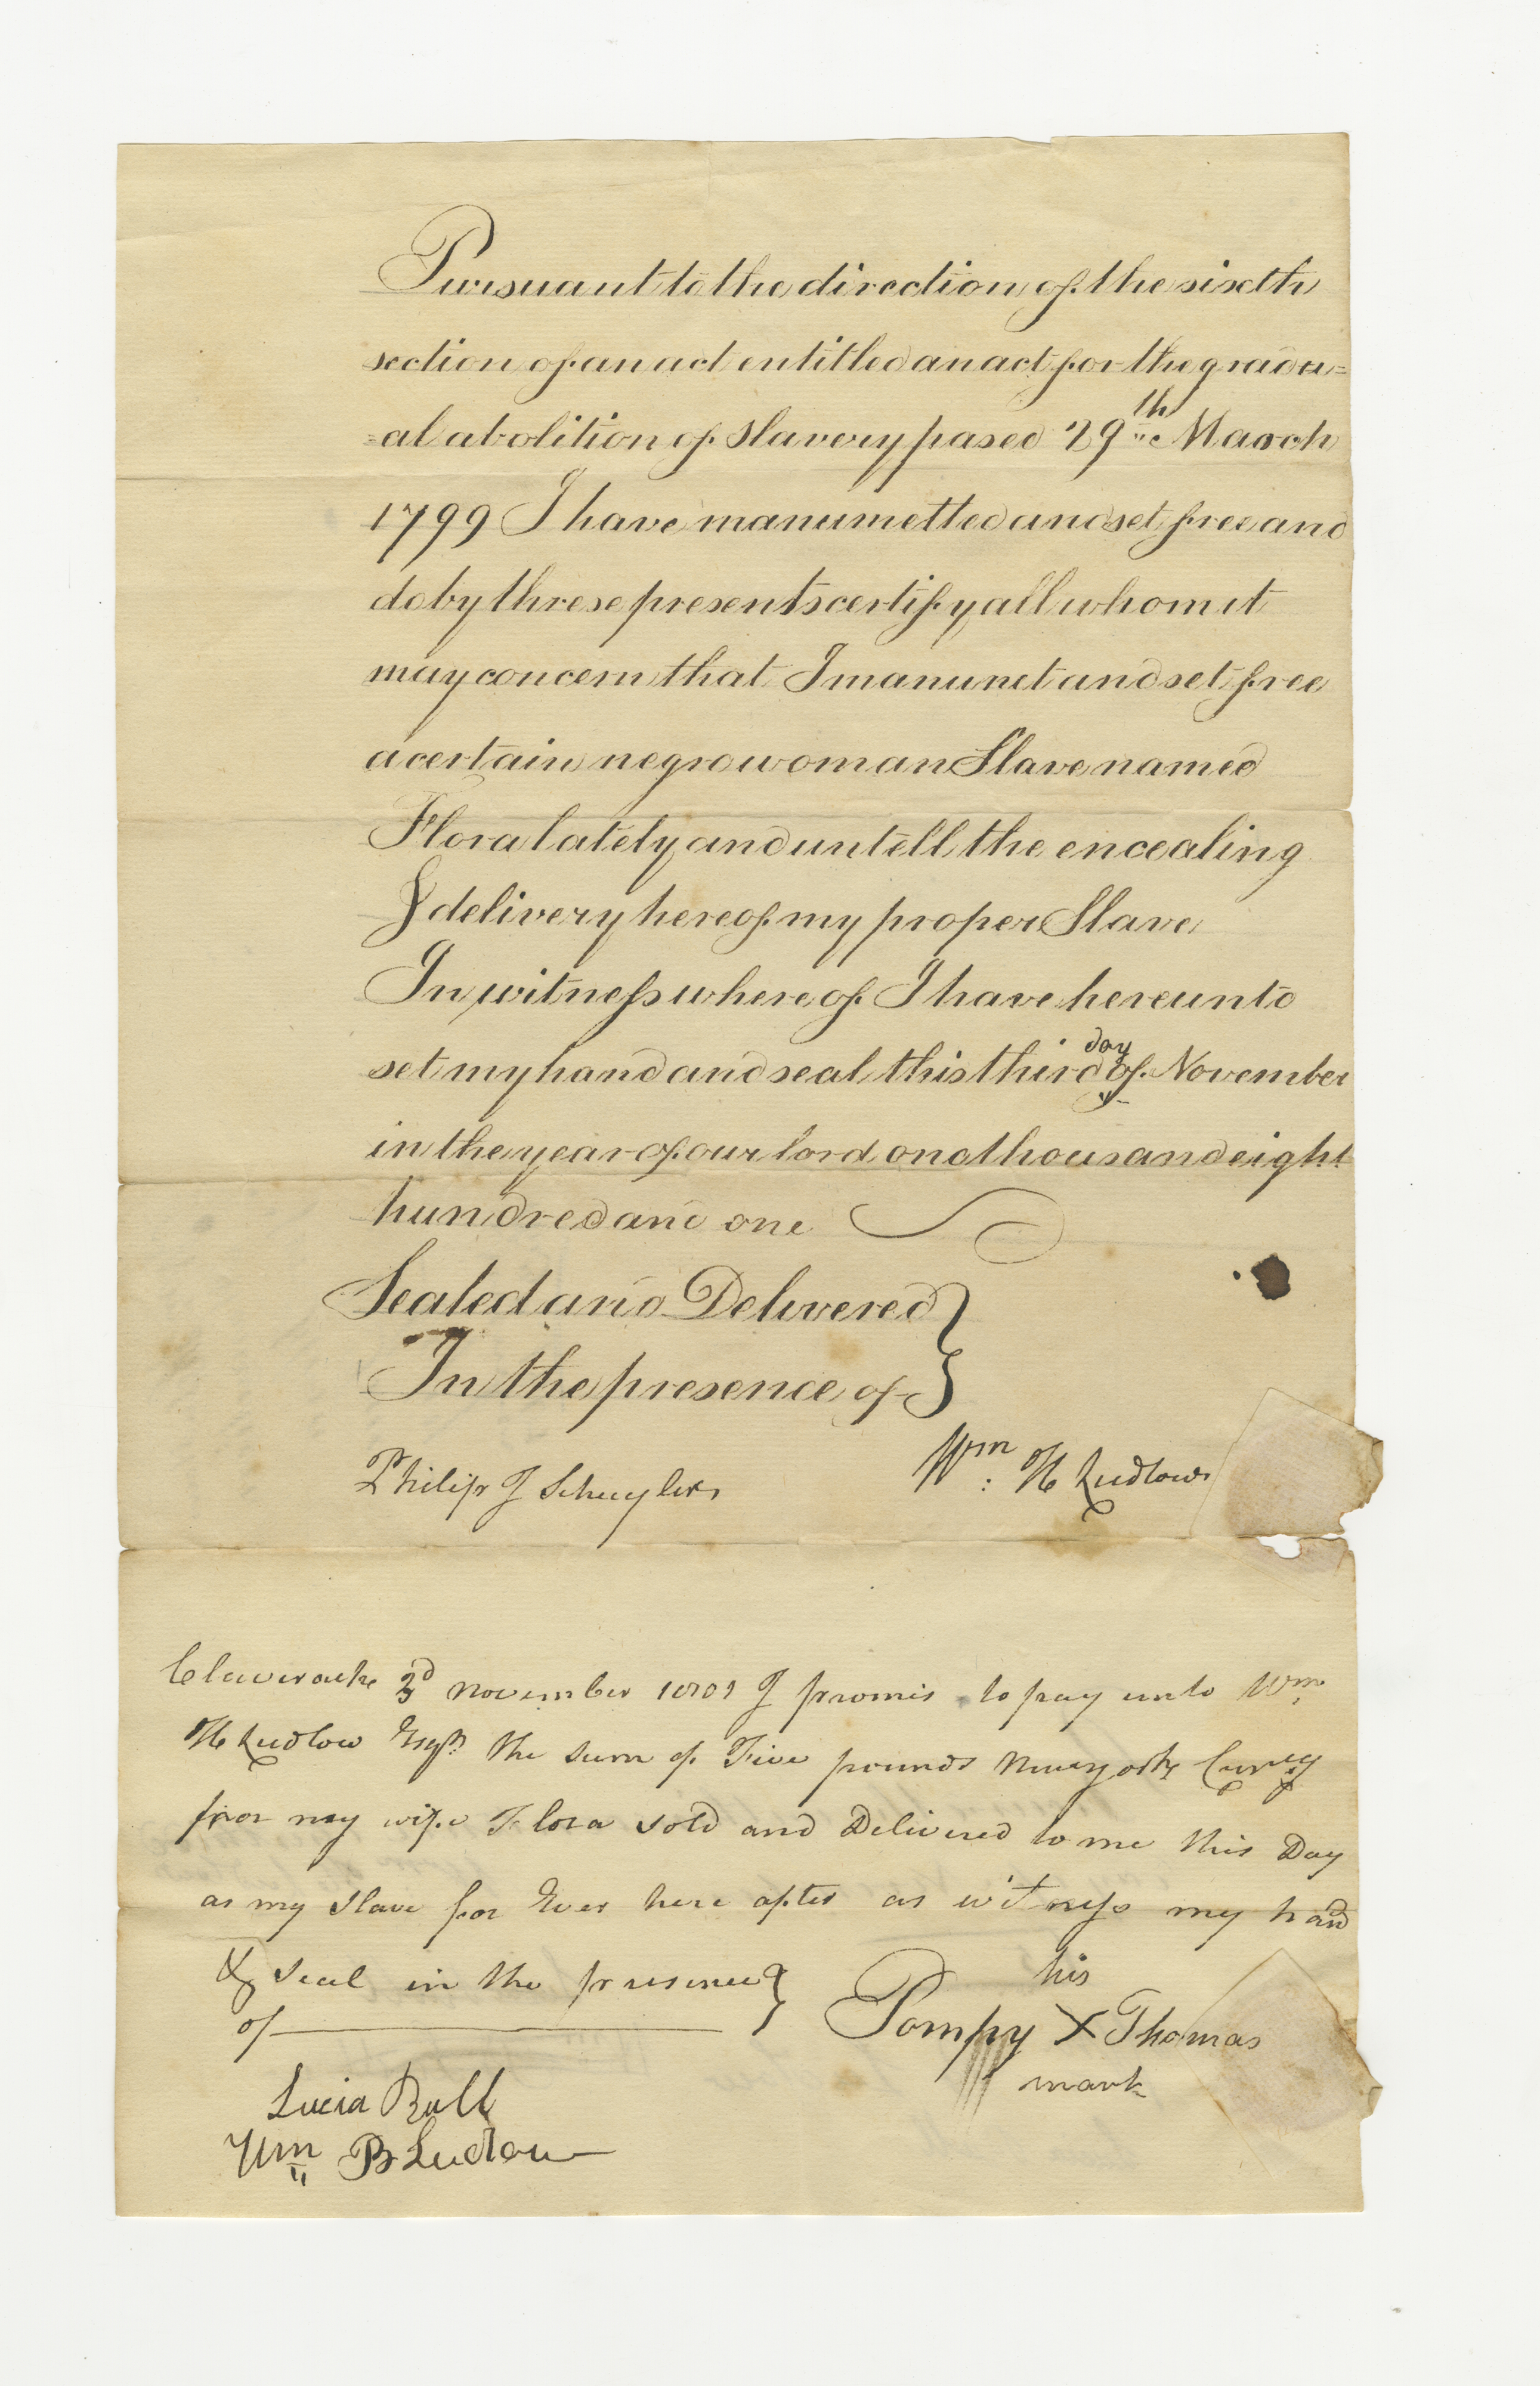 Pursuant to the direction of the sixth
section of an act entitled an act for the gradu=
=al abolition of slavery pased 29th March
1799 I have manumetted and set free and
do by threse presents certify all whom it
may concern that I manumet and set free
a certain negro woman Slave named
Flora lately and untell the encealing
& delivery hereof my proper Slave
In witness whereof I have hereunto
set my hand and seal this third day of November
in the year of our lord one thousand eight
hundred and one
Sealed and Delivered
In the presence of
Philip J Schuyler
Wm: H Ludlow
Claverack 3d November 1801 I promis to pay unto Wm
H Ludlow Esqr. the sum of Five pounds Newyork Curcy
for my wife Flora sold and Delivered to me this Day
as my slave for Ever here after as witness my hand
& seal in the presence
of
his
Pompy X Thomas
mark
Lucia Bull
Wm B Ludlow